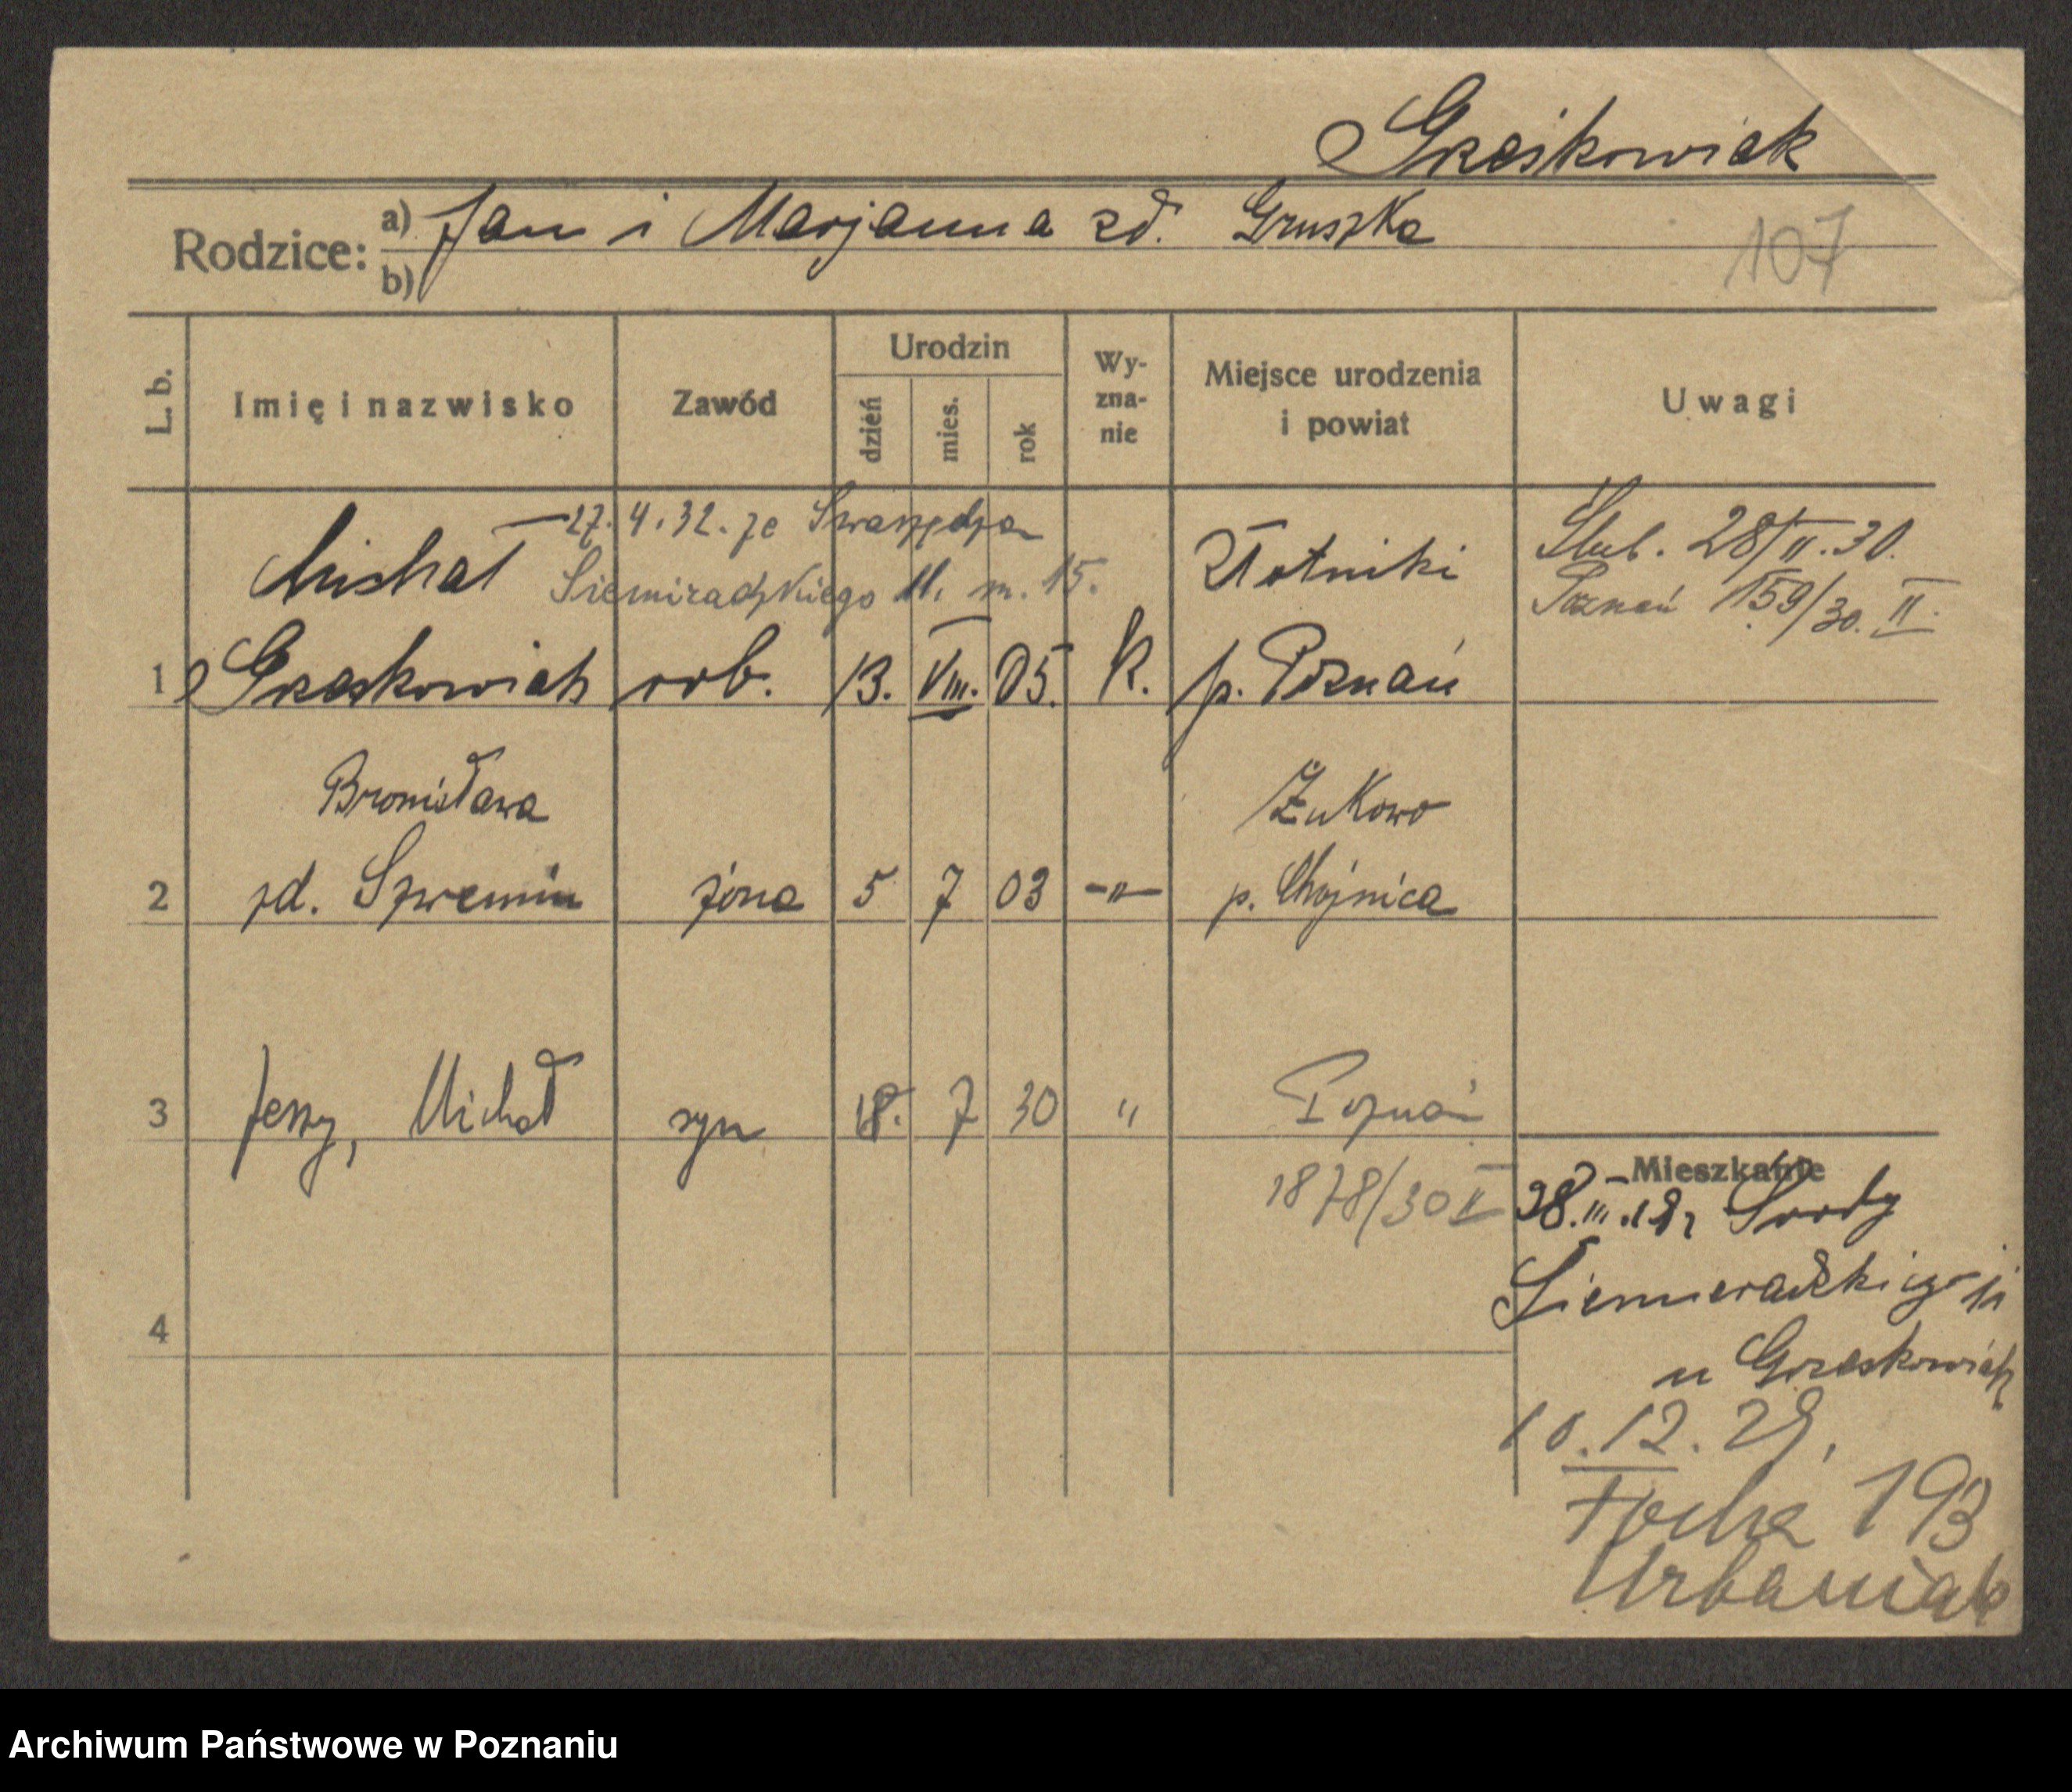 Grześkowiak
Rodzice: a) Jan i Marjanna zd. Gruszka
b)
107
L. b. Imię i nazwisko Zawód Urodzin dzień mies. rok Wy-zna-nie Miejsce urodzenia i powiat Uwagi
27. 4. 32. ze Swarzędza
Michał Siemiradzkiego 11. m. 15. Złotniki Ślub. 28/II.30.
Poznań 159/30. II.
1 Grzeskowiak rob. 13. VIII. 05. K. p. Poznań
Bronisława Żukowo
2 zd. Szwemin żona 5 7 03 -"- p. Chojnica
3 Jerzy, Michał syn 18. 7 30 " Poznań
1878/30 II
Mieszkanie
28.III. Środy
Siemieradzkiego 11
u Grzeskowiak
4
10.12.29.
Focha 193
Urbaniak
Archiwum Państwowe w Poznaniu